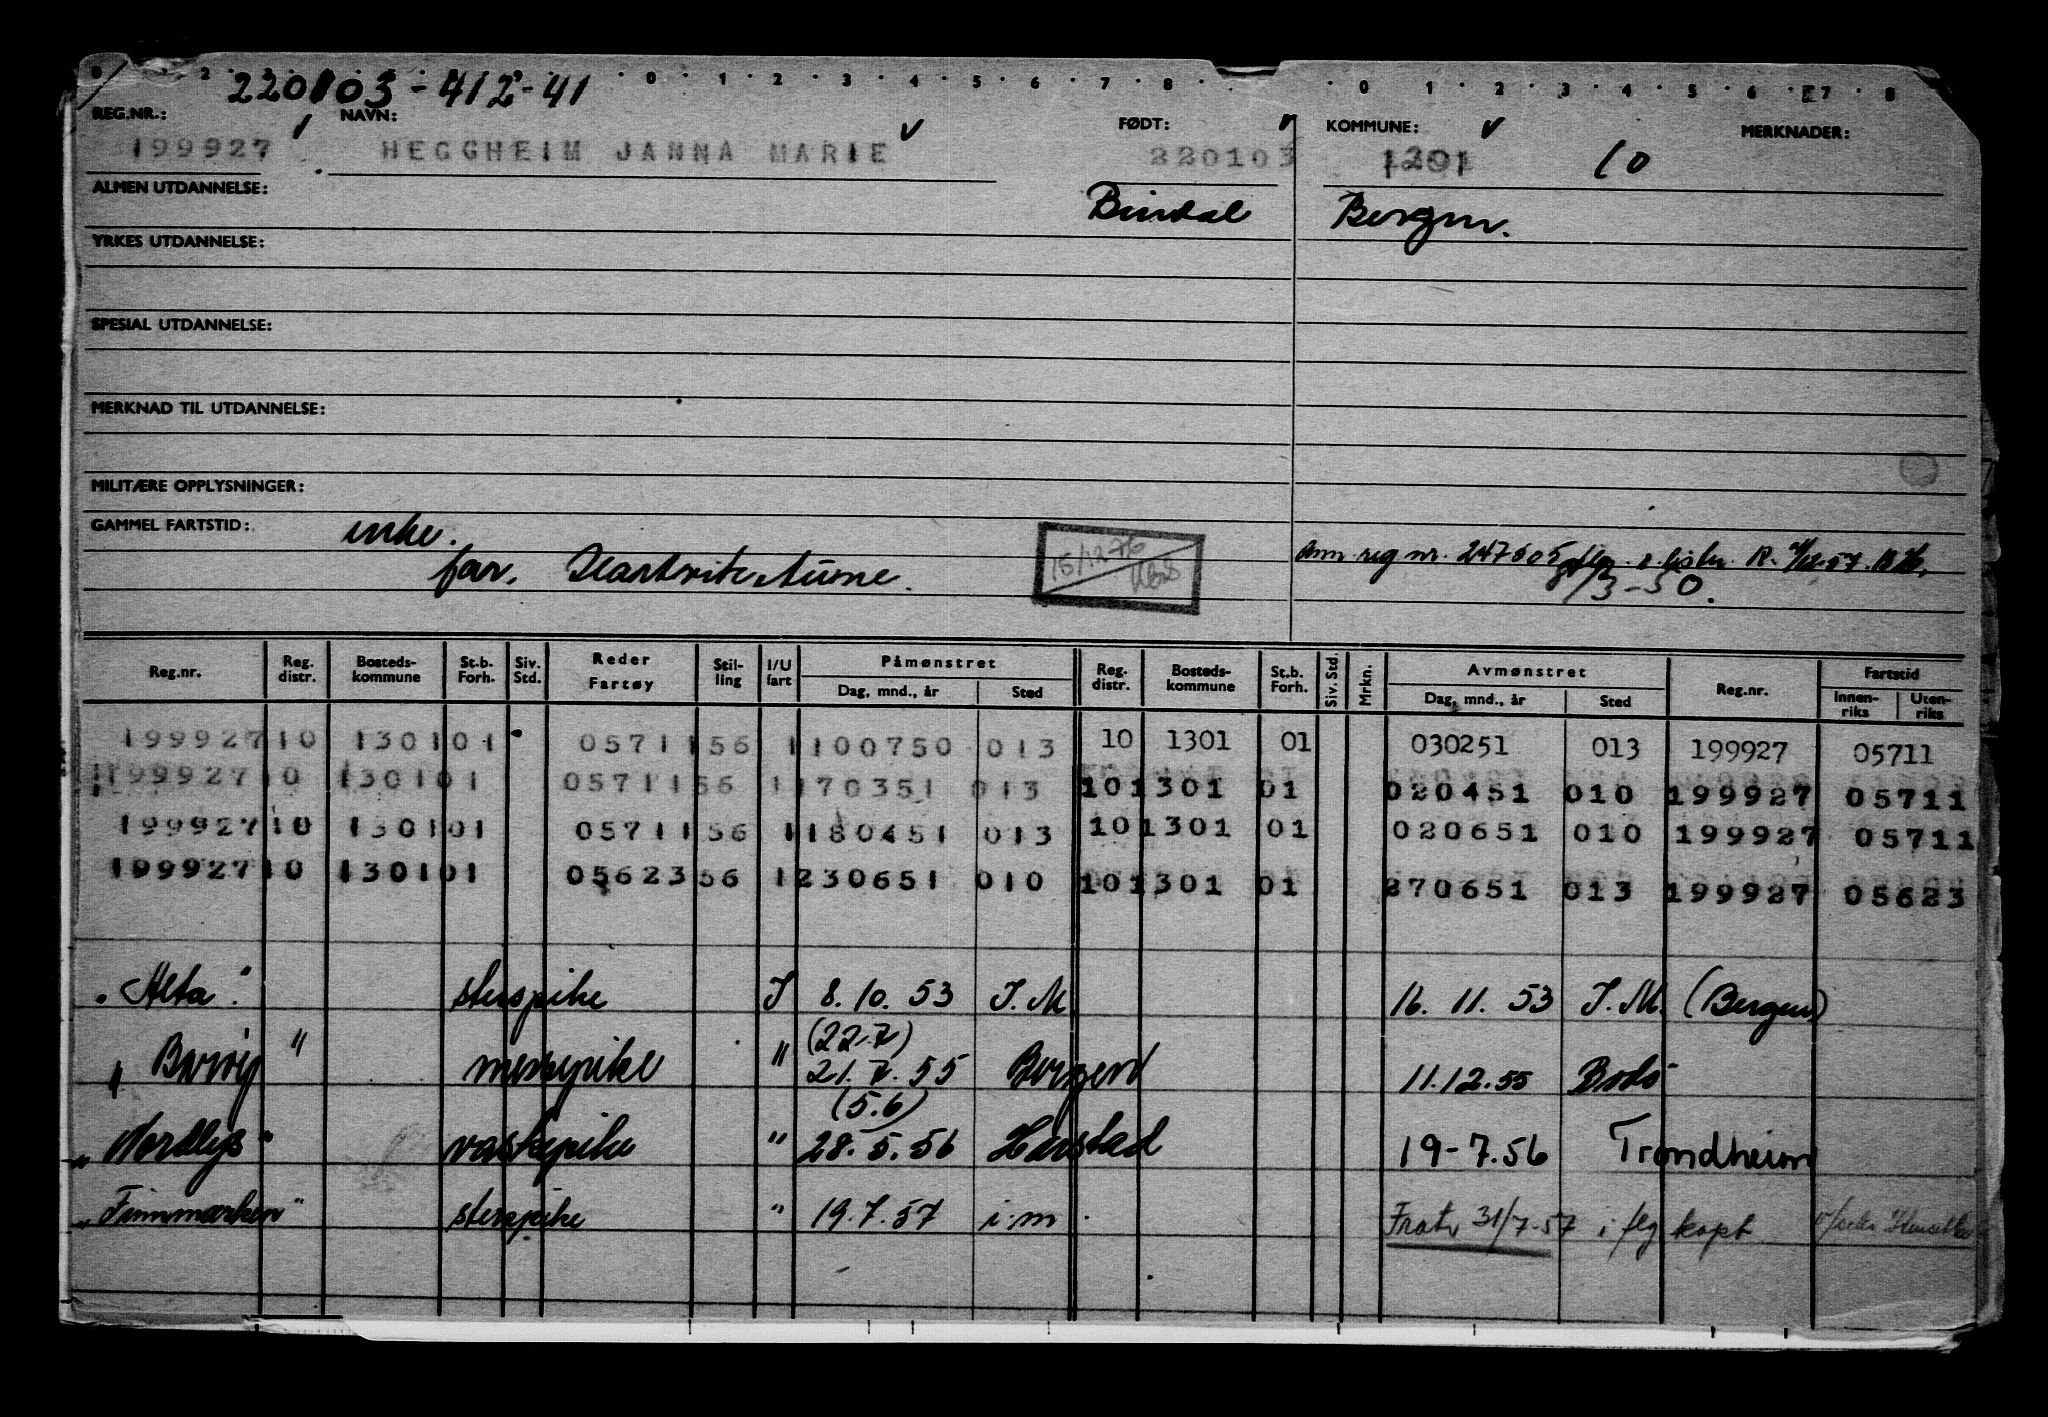 0 2 3 0 1 2 3 4 5 6 7 8 0 1 2 3 4 5 6 7 8
220103-412-41
REG.NR.: NAVN: FØDT: KOMMUNE: MERKNADER:
199927 HEGGHEIM JANNA MARIE 220103 1201 10
ALMEN UTDANNELSE: Bindal Bergen.
YRKES UTDANNELSE:
SPESIAL UTDANNELSE:
MERKNAD TIL UTDANNELSE:
MILITÆRE OPPLYSNINGER:
GAMMEL FARTSTID: enke.
far. Aune.
15/12-76
Ann. reg nr. 247505
/3-50.
Reg.nr. Reg. distr. Bosteds-kommune St.b. Forh. Siv. Std. Reder Fartøy Stil-ling I/U fart Påmønstret Dag, mnd., år Sted Reg. distr. Bosteds-kommune St.b. Forh. Siv. Std. Mrkn. Avmønstret Dag, mnd., år Sted Reg.nr. Fartstid Innen-riks Uten-riks
199927 10 1301 01 05711 56 1 100750 013 10 1301 01 030251 013 199927 05711
199927 10 1301 01 05711 56 1 170351 013 10 1301 01 020451 010 199927 05711
199927 10 1301 01 05711 56 1 180451 013 10 1301 01 020651 010 199927 05711
199927 10 1301 01 05623 56 1 230651 010 10 1301 01 270651 013 199927 05623
"Alta". sterspike I 8.10.53 I.M 16.11.53 I.M. (Bergen)
(22.7)
" " messepike " 21.7.55 Bergen 11.12.55 Bodø
(5.6)
"Nordlys" vaskepike " 28.5.56 Harstad 19-7.56 Trondheim
"Finnmarken" sterspike " 19.7.57 i.m. Fratr 31/7-57 i flg kapt